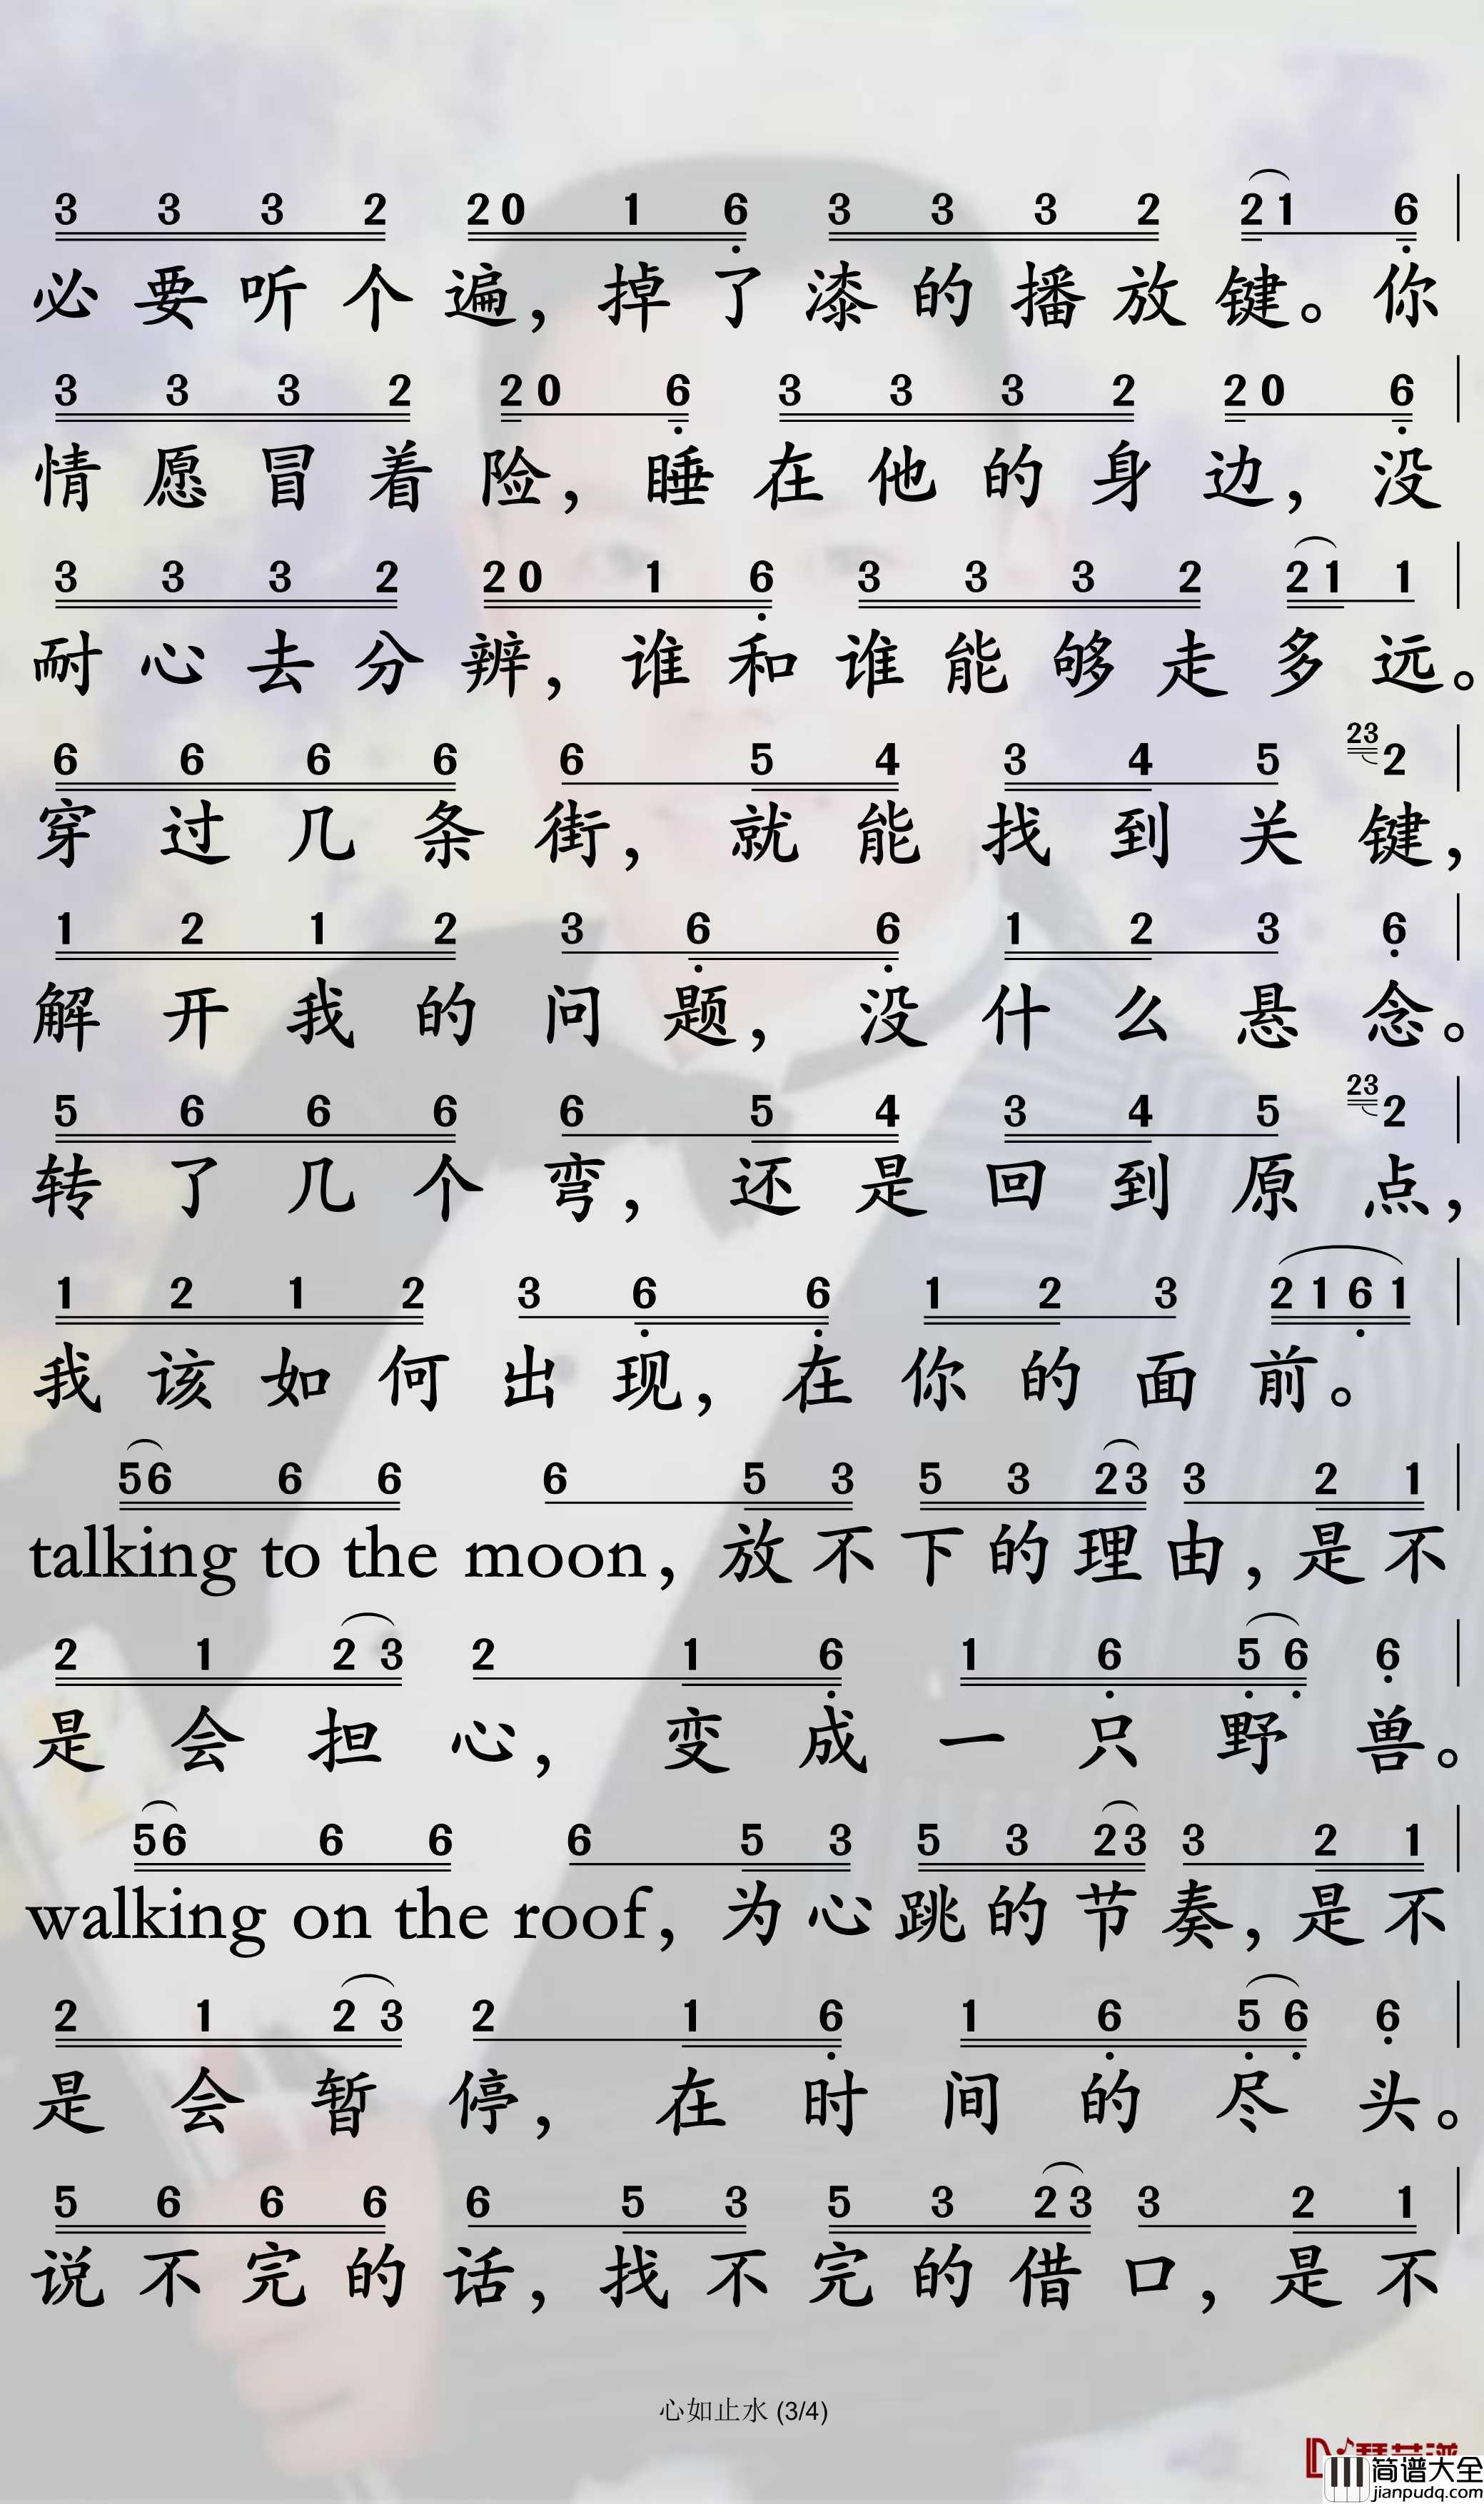 3 3 3 2 20 1 6 3 3 3 2 21 6
必要听个遍，掉了漆的播放键。你
3 3 3 2 20 6 3 3 3 2 20 6
情愿冒着险，睡在他的身边，没
3 3 3 2 20 1 6 3 3 3 2 21 1
耐心去分辨，谁和谁能够走多远。
6 6 6 6 6 5 4 3 4 5 23 2
穿过几条街，就能找到关键，
1 2 1 2 3 6 6 1 2 3 6
解开我的问题，没什么悬念。
5 6 6 6 6 5 4 3 4 5 23 2
转了几个弯，还是回到原点，
1 2 1 2 3 6 6 1 2 3 2161
我该如何出现，在你的面前。
56 6 6 6 5 3 5 3 23 3 2 1
talking to the moon，放不下的理由，是不
2 1 23 2 1 6 1 6 56 6
是会担心，变成一只野兽。
56 6 6 6 5 3 5 3 23 3 2 1
walking on the roof，为心跳的节奏，是不
2 1 23 2 1 6 1 6 56 6
是会暂停，在时间的尽头。
5 6 6 6 6 5 3 5 3 23 3 2 1
说不完的话，找不完的借口，是不
心如止水 (3/4)
简谱大全
jianpudq.com